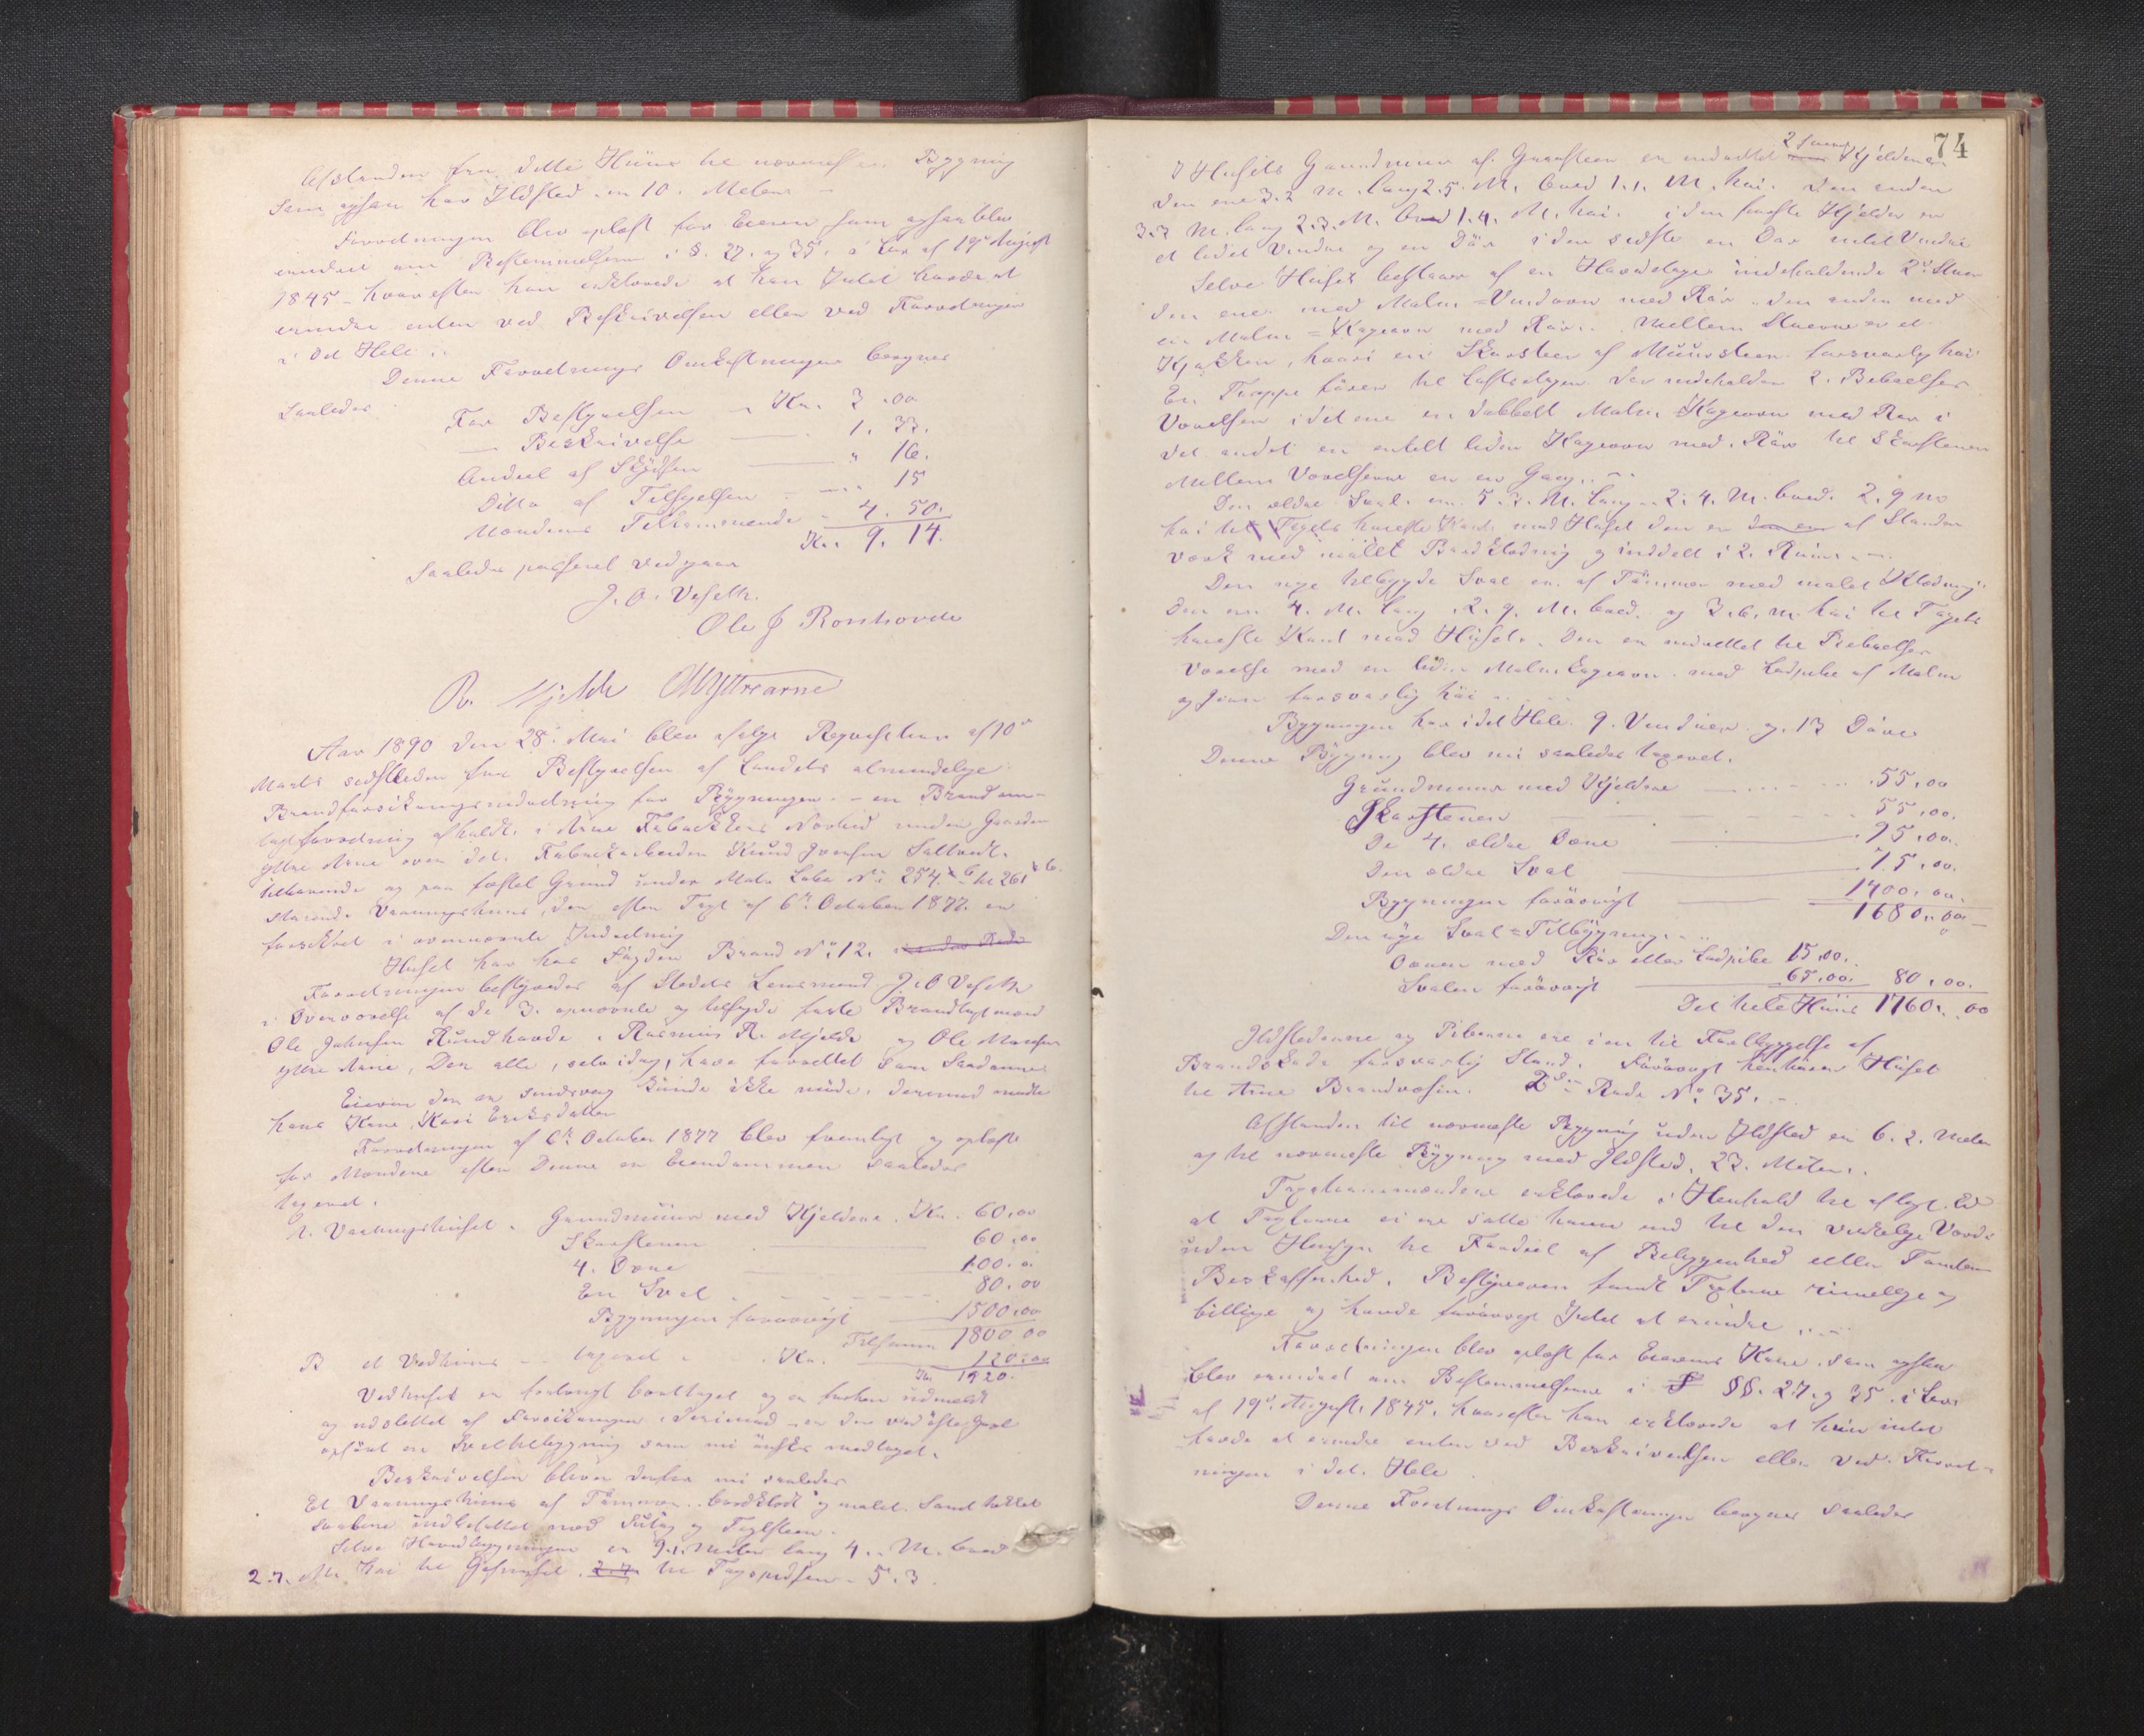 Afstanden fra dette Huus til nærmeste Bygning
som ogsaa har Ildsted er 10. Meter
Forretningen blev oplæst for Eieren som ogsaa blev
erindret om Bestemmelserne i §. 27. og 35. i Lov af 19de August
1845 – hvorefter han erklærede at han Intet havde at
erindre enten ved Beskrivelsen eller ved Forretningen
i det Hele.
Denne Forretnings Omkostninger beregnes
saaledes
For Bestyrelsen Kr. 3.00
— Beskrivelse 1.33.
Andeel af Skydsen " 16.
Ditto af Tilsigelsen 15
Mændenes Tilkommende 4.50.
Kr. 9.14.
Saaledes passeret Vedgaaer
J. O. Veseth.
Ole J Ronhovde
R. Mjelde OMYttrearne
Aar 1890 den 28. Mai blev ifølge Reqvisition af 10de
Marts sidstleden fra Bestyrelsen af Landets almindelige
Brandforsikringsindretning for Bygninger – en Brandom-
taxtforretning afholdt i Arne Fabrikkers Nærhed under Gaarden
yttre Arne over det Fabrikarbeider Knud Iversen Saltvedt
tilhørende og paa fæstet Grund under Matr. Løbe No 254. b til 261 b.
staaende Vaaningshuus, der efter Taxt af 6te October 1877 er
forsikret i ovennævnte Indretning
Huset har hos Fogden Brand No 12.
Forretningen bestyredes af Stedets Lensmand J. O Veseth
i Overværelse af de 3. opnævnte og tilsagde faste Brandtaxtmænd
Ole Johnsen Rundhovde, Rasmus R. Mjelde og Ole Monsen
yttre Arne, Der alle, selv idag, have forrettet som Saadanne
Eieren der er sindsvag kunde ikke møde, derimod mødte
hans Kone Kari Eriksdatter
Forretningen af 6te October 1877 blev fremlagt og oplæst
for Mændene efter Denne er Eiendommen saaledes
taxeret.
A. Vaaningshuset. Grundmuur med Kjeldere Kr. 60,00
Skorstenen 60,00
4. Ovne 100.
En Sval 80.00
Bygningen forøvrigt 1500,00
Tilsamm 1800 00
B et Vedhuus taxeret Kr. 120,00
Kr. 1920.
Vedhuset er forlængst borttaget og er forhen udmeldt
og udslettet af Forsikringen, derimod er der ved østre Gavl
opført en Svaltilbygning som nu ønskes medtaget.
Beskrivelsen bliver derfor nu saaledes
Et Vaaningshuus af Tømmer bordklædt og malet Samt tækket
Svalene indbefattet med Sutag og Taglsteen.
Selve Hovedbygningen er 9.1. Meter lang 4. M. bred
2.7. M. høi til Gesimset 2.7. til Tagspidsen 5.3.
74
I Husets Grundmuur af Graasteen er indrettet 2 Kjeldere
Den ene 3.2 M. lang 2.5. M. bred 1.1. M. høi. Den anden
3.3 M. lang 2.3. M. bred 1.4. M. høi. i den første Kjelder er
et lidet Vindue og en Dør i den sidste en Dør intet Vindue
Selve Huset bestaar af en Hovedetage indeholdende 2de Stuer
den ene med Malm-Vindovn med Rør den anden med
en Malm-Kageovn med Rør. Mellem Stuerne er et
Kjøkken, hvori en Skorsteen af Muursteen forsvarlig høi
En Trappe fører til Loftsetagen der indeholder 2. Beboelses
Værelser i det ene en dobbelt Malm Kageovn med Rør i
det andet en enkelt liden Kageovn med Rør til Skorstenen
Mellem Værelserne er en Gang.
Den ældre Sval er 5.3. M. lang 2.4. M. bred. 2.9 M
høi til Tagets høieste Kant mod Huset den er af Stander
værk med malet Bordklædning og inddelt i 2. Rum.
Den nye tilbygde Sval er af Tømmer med malet Klædning
den er 4. M. lang 2.9. M. bred. og 3.6. M. høi til Tagets
høieste Kant mod Huset. Den er indrettet til Beboelses
Værelse med en liden Malm Kageovn med Ladpibe af Malm
og Jern forsvarlig høi
Bygningen har i det Hele 9. Vinduer og 13 Døre
Denne Bygning blev nu saaledes taxeret.
Grundmuur med Kjeldre 55,00
Skorstenen 55,00.
De 4. ældre Ovne 95,00.
Den ældre Sval 75,00.
Bygningen forøvrigt 1400,00.
1680,00
Den nye Sval-Tilbygning
Ovnen med Rør eller Ladpibe 15,00.
Svalen forøvrigt 65,00. 80,00.
Det hele Huus 1760,00
Ildstederne og Piberne ere i en til Forebyggelse af
Brandskade forsvarlig Stand. Forøvrigt henhører Huset
til Arne Brandvæsen. 2den Rode No 35.
Afstanden til nærmeste Bygning uden Ildsted er 6.2. Meter
og til nærmeste Bygning med Ildsted, 23. Meter.
Taxtmændene erklærede i Henhold til aflagt Ed
at Taxterne ei ere satte høiere end til den virkelige Værdi
uden Hensyn til Fordeel af Beliggenhed eller Tomtens
Beskaffenhed. Bestyreren fandt Taxterne rimelige og
billige og havde forøvrigt Intet at erindre
Forretningen blev oplæst for Eierens Kone som ogsaa
blev erindret om Bestemmelserne i §§. 27. og 35. i Lov
af 19de August 1845, hvorefter hun erklærede at hun intet
havde at erindre enten ved Beskrivelsen eller ved Forret-
ningen i det Hele
Denne Forretnings Omkostninger beregnes saaledes